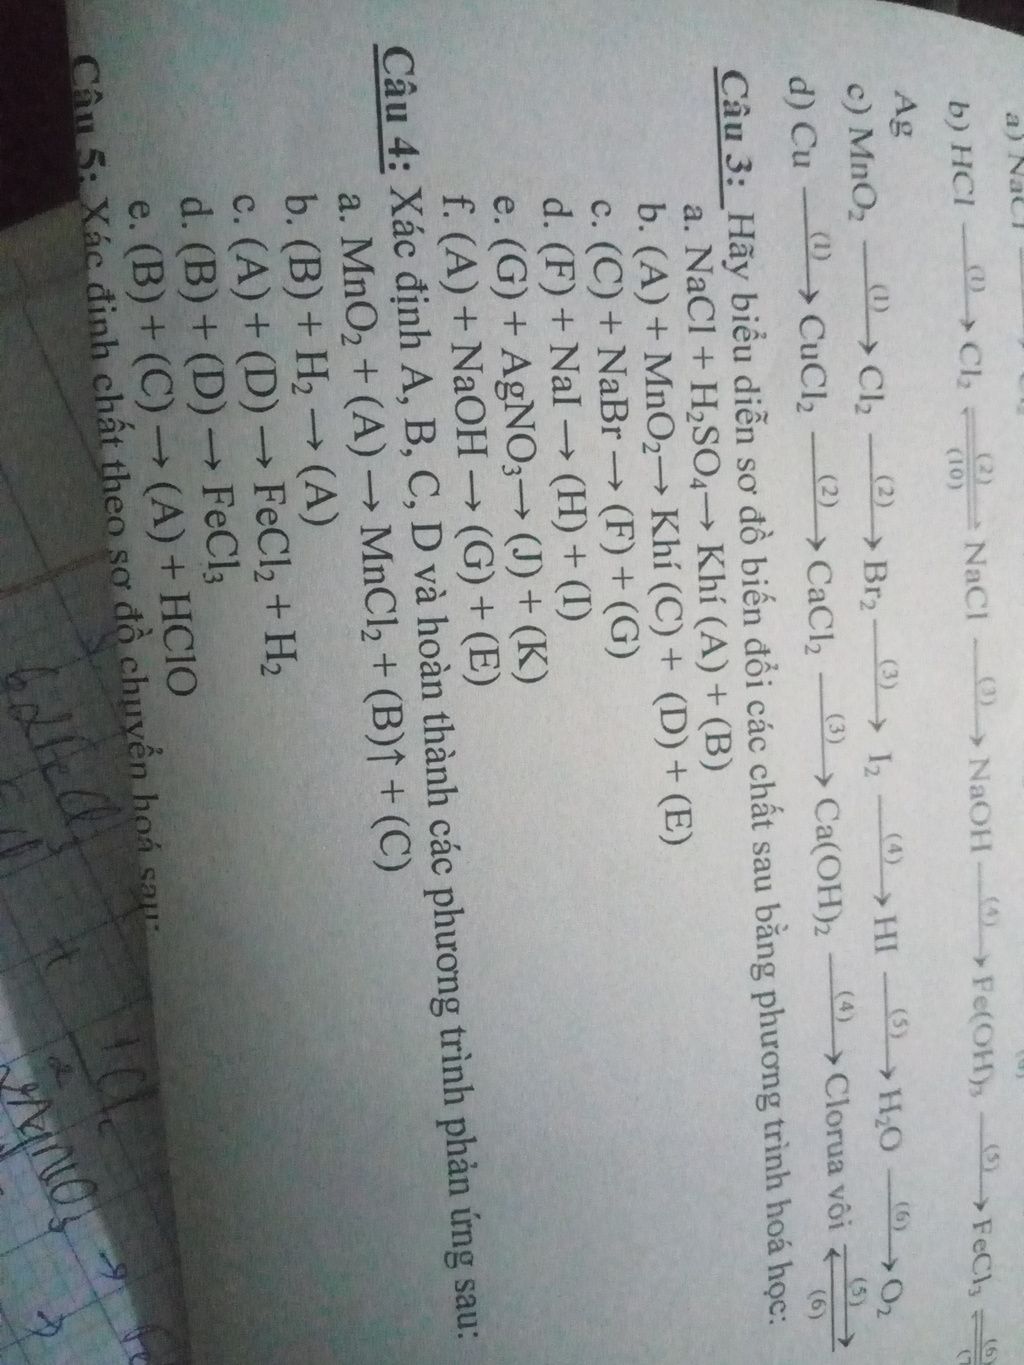 a) NaCl
b) HCl —(1)→ Cl₂ ⇌(2)(10) NaCl —(3)→ NaOH —(4)→ Fe(OH)₃ —(5)→ FeCl₃ ⇌(6)
Ag
c) MnO₂ —(1)→ Cl₂ —(2)→ Br₂ —(3)→ I₂ —(4)→ HI —(5)→ H₂O —(6)→ O₂
d) Cu —(1)→ CuCl₂ —(2)→ CaCl₂ —(3)→ Ca(OH)₂ —(4)→ Clorua vôi ⇌(5)(6)
Câu 3: Hãy biểu diễn sơ đồ biến đổi các chất sau bằng phương trình hoá học:
a. NaCl + H₂SO₄→ Khí (A) + (B)
b. (A) + MnO₂→ Khí (C) + (D) + (E)
c. (C) + NaBr → (F) + (G)
d. (F) + NaI → (H) + (I)
e. (G) + AgNO₃→ (J) + (K)
f. (A) + NaOH → (G) + (E)
Câu 4: Xác định A, B, C, D và hoàn thành các phương trình phản ứng sau:
a. MnO₂ + (A) → MnCl₂ + (B)↑ + (C)
b. (B) + H₂ → (A)
c. (A) + (D) → FeCl₂ + H₂
d. (B) + (D) → FeCl₃
e. (B) + (C) → (A) + HClO
Câu 5: Xác định chất theo sơ đồ chuyển hoá sau: